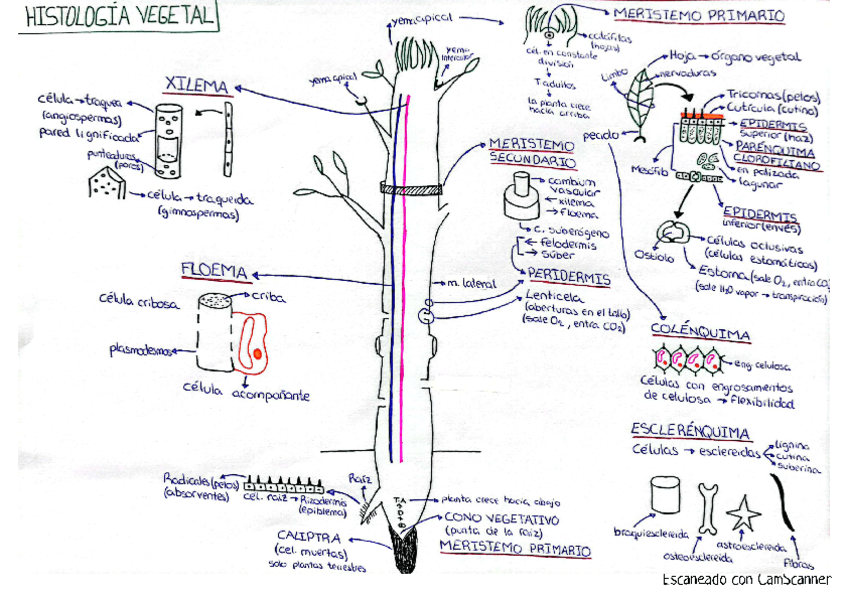 HISTOLOGÍA VEGETAL
yema apical
MERISTEMO PRIMARIO
catáfilas
(hojas)
cél. en constante
división
T adultos
la planta crece
hacia arriba
yema
yema apical
XILEMA
célula → traquea
(angiospermas)
pared lignificada
punteaduras
(poros)
célula → traqueida
(gimnospermas)
MERISTEMO
SECUNDARIO
cambium
vascular
xilema
floema
c. suberógeno
felodermis
súber
PERIDERMIS
m. lateral
Lenticela
(aberturas en el tallo)
(sale O2, entra CO2)
FLOEMA
célula cribosa
criba
plasmodesmos
célula acompañante
Hoja → órgano vegetal
nervaduras
Limbo
peciolo
Tricomas (pelos)
Cutícula (cutina)
EPIDERMIS
superior (haz)
PARÉNQUIMA
CLOROFILIANO
en palizada
lagunar
Mesófilo
EPIDERMIS
inferior (envés)
Células oclusivas
(células estomáticas)
Ostiolo
Estoma (sale O2, entra CO2)
(sale H2O vapor → transpiración)
COLÉNQUIMA
eng. celulosa
Células con engrosamientos
de celulosa → flexibilidad
ESCLERÉNQUIMA
Células → esclereidas
lignina
cutina
suberina
braquiesclereida
osteoesclereida
astroesclereida
fibras
Radicales (pelos)
(absorventes)
cel. raíz → Rizodermis
(epiblema)
Raíz
planta crece hacia abajo
CONO VEGETATIVO
(punta de la raíz)
MERISTEMO PRIMARIO
CALIPTRA
(cel. muertas)
solo plantas terrestres
Escaneado con CamScanner